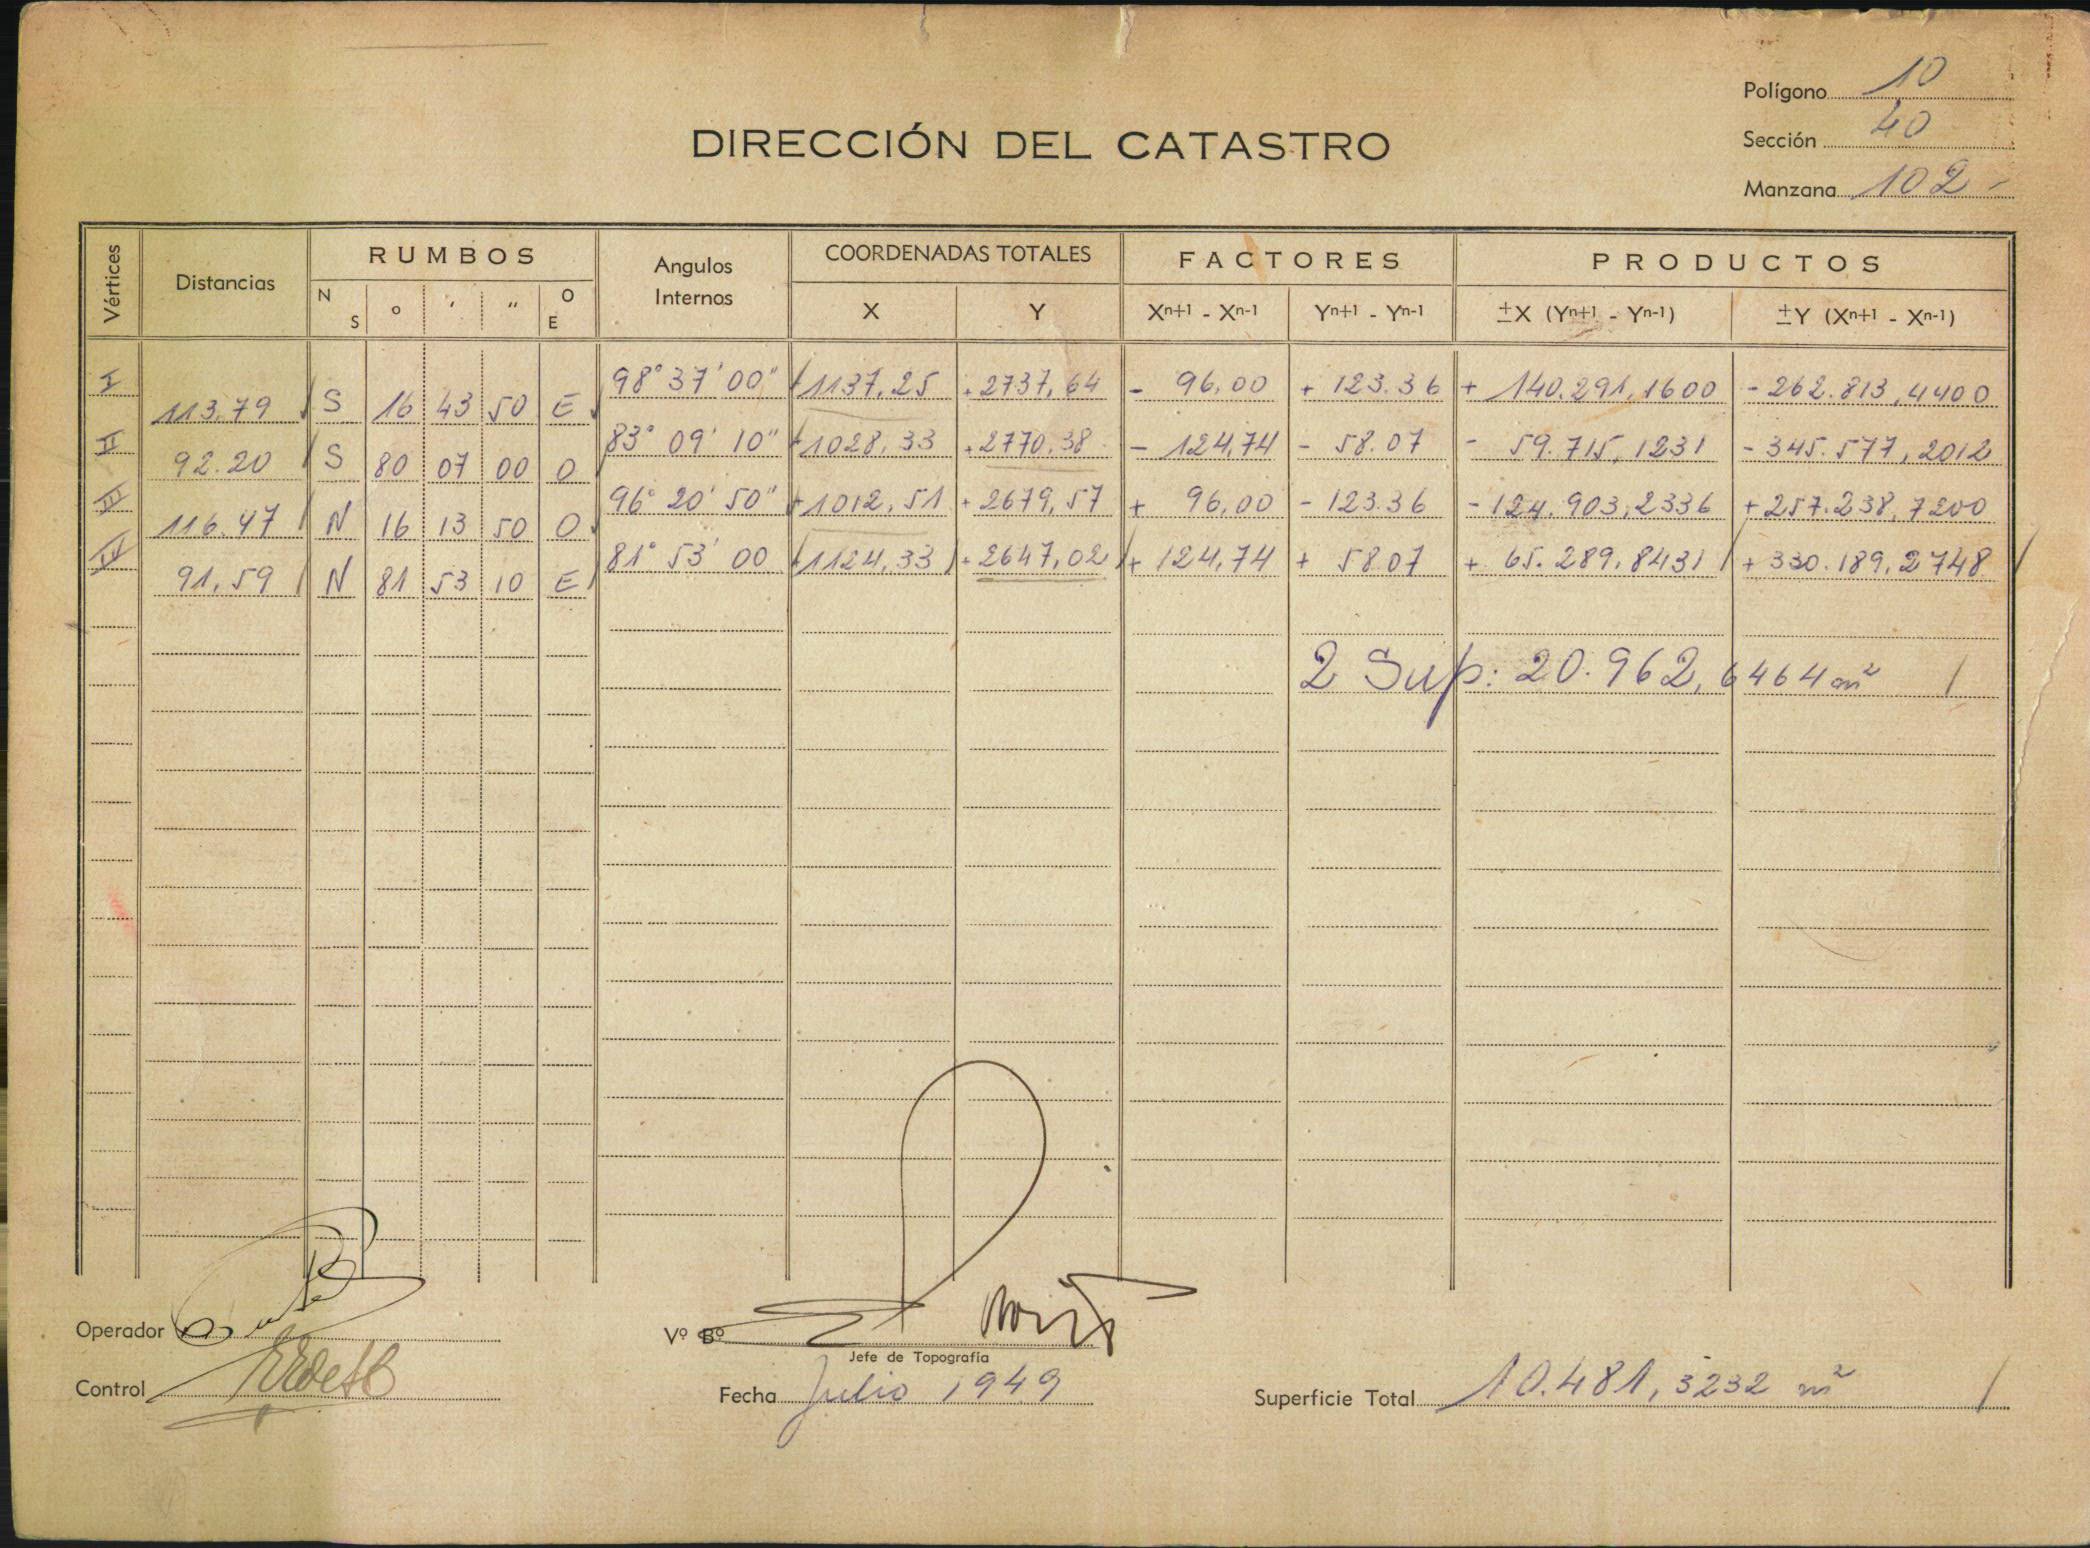 Polígono 10
DIRECCIÓN DEL CATASTRO
Sección 40
Manzana 102 -
Vértices Distancias RUMBOS Angulos Internos COORDENADAS TOTALES FACTORES PRODUCTOS
N S ° ' " O E X Y Xn+1 - Xn-1 Yn+1 - Yn-1 ±X (Yn+1 - Yn-1) ±Y (Xn+1 - Xn-1)
I 98° 37' 00" +1137,25 +2737,64 - 96,00 + 123.36 + 140.291,1600 - 262.813,4400
113.79 S 16 43 50 E
II 83° 09' 10" +1028,33 +2770,38 - 124,74 - 58.07 - 59.715,1231 - 345.577,2012
92.20 S 80 07 00 O
III 96° 20' 50" +1012,51 +2679,57 + 96,00 - 123.36 - 124.903,2336 + 257.238,7200
116.47 N 16 13 50 O
IV 81° 53' 00 +1124,33 +2647,02 + 124,74 + 58.07 + 65.289,8431 + 330.189,2748
91,59 N 81 53 10 E
2 Sup: 20.962,6464 m²
Operador
Vº Bº
Jefe de Topografía
Control
Fecha Julio 1949
Superficie Total 10.481,3232 m²